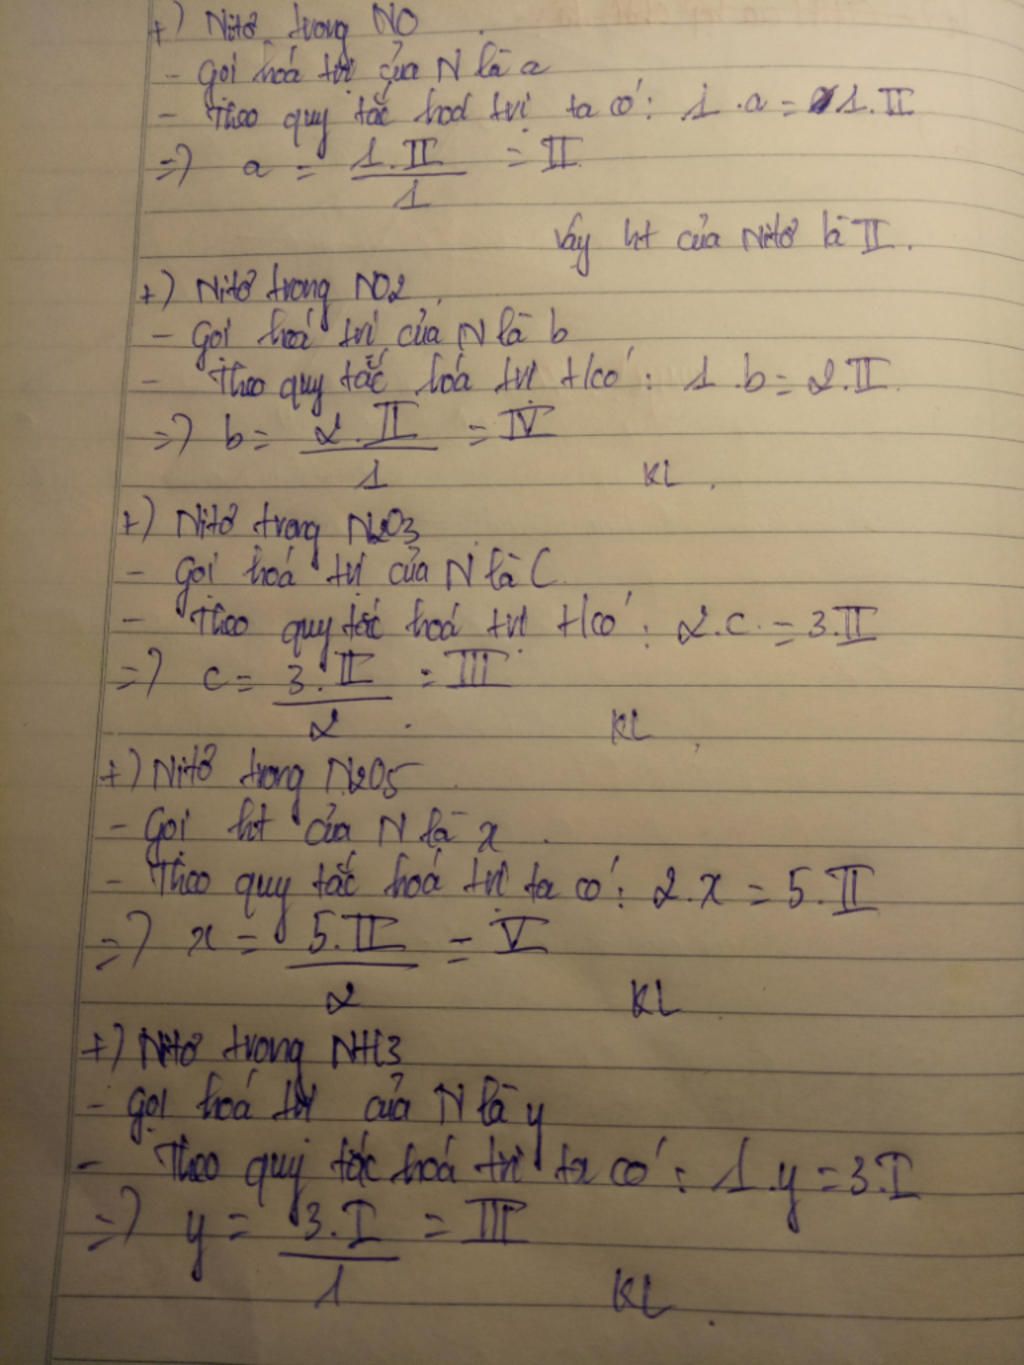 +) Nitơ trong NO
- Gọi hoá trị của N là a
- Theo quy tắc hoá trị ta có: 1.a = 1.II
=> a = 1.II / 1 = II
Vậy ht của Nitơ là II.
+) Nitơ trong NO2
- Gọi hoá trị của N là b
- Theo quy tắc hoá trị t/có: 1.b = 2.II
=> b = 2.II / 1 = IV
KL
+) Nitơ trong N2O3
- Gọi hoá trị của N là C
- Theo quy tắc hoá trị t/có: 2.c = 3.II
=> c = 3.II / 2 = III
KL
+) Nitơ trong N2O5
- Gọi ht của N là x
- Theo quy tắc hoá trị ta có: 2.x = 5.II
=> x = 5.II / 2 = V
KL
+) Nitơ trong NH3
- Gọi hoá trị của N là y
- Theo quy tắc hoá trị ta có: 1.y = 3.I
=> y = 3.I / 1 = III
KL.